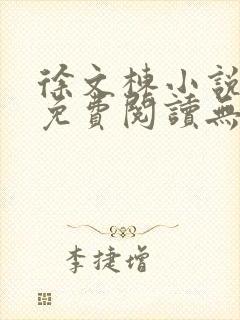 徐文棟小說
免費閱讀無
李捷增